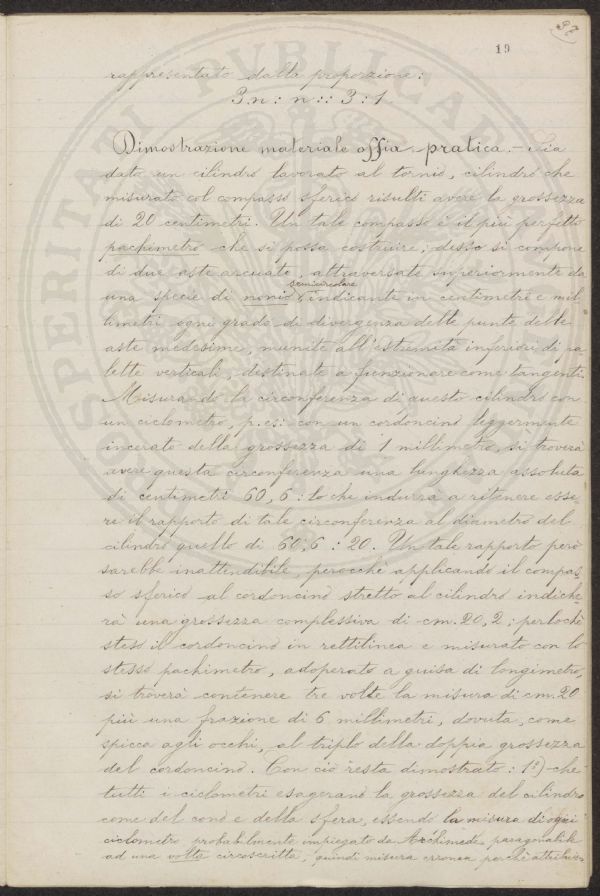 97
19
rappresentato dalla proporzione:
3.n : n :: 3 : 1
Dimostrazione materiale ossia pratica. – Sia
dato un cilindro lavorato al tornio, cilindro che
misurato col compasso sferico risulti avere la grossezza
di 20 centimetri. Un tale compasso è il più perfetto
pachimetro che si possa costruire; desso si compone
di due aste arcuate, attraversate inferiormente da
semicircolare
una specie di nonio, indicante in centimetri e mil-
limetri ogni grado di divergenza delle punte delle
aste medesime, munite all'estremità inferiori di pa-
lette verticali, destinate a funzionare come tangenti.
Misurando la circonferenza di questo cilindro con
un ciclometro, p. es: con un cordoncino leggermente
incerato della grossezza di 1 millimetro, si troverà
avere questa circonferenza una lunghezza assoluta
di centimetri 60,6: lo che indurrà a ritenere esse-
re il rapporto di tale circonferenza al diametro del
cilindro quello di 60,6 : 20. Un tale rapporto però
sarebbe inattendibile, perocchè applicando il compas-
so sferico al cordoncino stretto al cilindro indiche-
rà una grossezza complessiva di cm. 20,2; perlochè
steso il cordoncino in rettilinea e misurato con lo
stesso pachimetro, adoperato a guisa di longimetro,
si troverà contenere tre volte la misura di cm. 20
più una frazione di 6 millimetri, dovuta, come
spicca agli occhi, al triplo della doppia grossezza
del cordoncino. Con ciò resta dimostrato: 1º) – che
tutti i ciclometri esagerano la grossezza del cilindro
come del cono e della sfera, essendo la misura di ogni
ciclometro, probabilmente impiegato da Archimede, paragonabile
ad una volta circoscritta, quindi misura erronea perchè
PROSPERITATI PVBLICAE